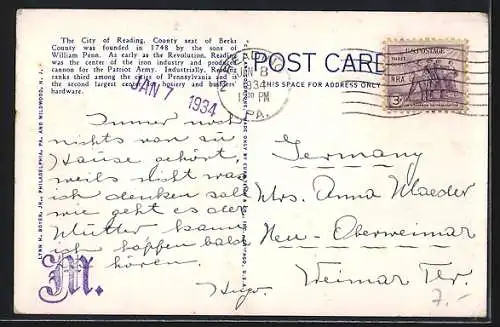 The City of Reading, County seat of Berks
County was founded in 1748 by the sons of
William Penn. As early as the Revolution, Reading
was the center of iron industry and produced
cannon for the Patriot Army. Industrially, Reading
ranks third among the cities of Pennsylvania and is
the second largest center hosiery and builders'
hardware.
JAN 7 1934
LYNN H. BOYER, JR., PHILADELPHIA, PA. AND WILDWOOD, N. J.
Immer noch
nichts von zu
Hause gehört,
weils nicht was
ich denken soll
wie geht es der
Mutter kann
ich hoffen bald
hören.
Hugo.
M.
POST CARD
THIS SPACE FOR ADDRESS ONLY
JAN 8
1934
PM
PA.
U.S. POSTAGE
NRA
3¢
Germany
Mrs. Anna Maeder
Neu-Oberweimar
Weimar Thr.
7.-